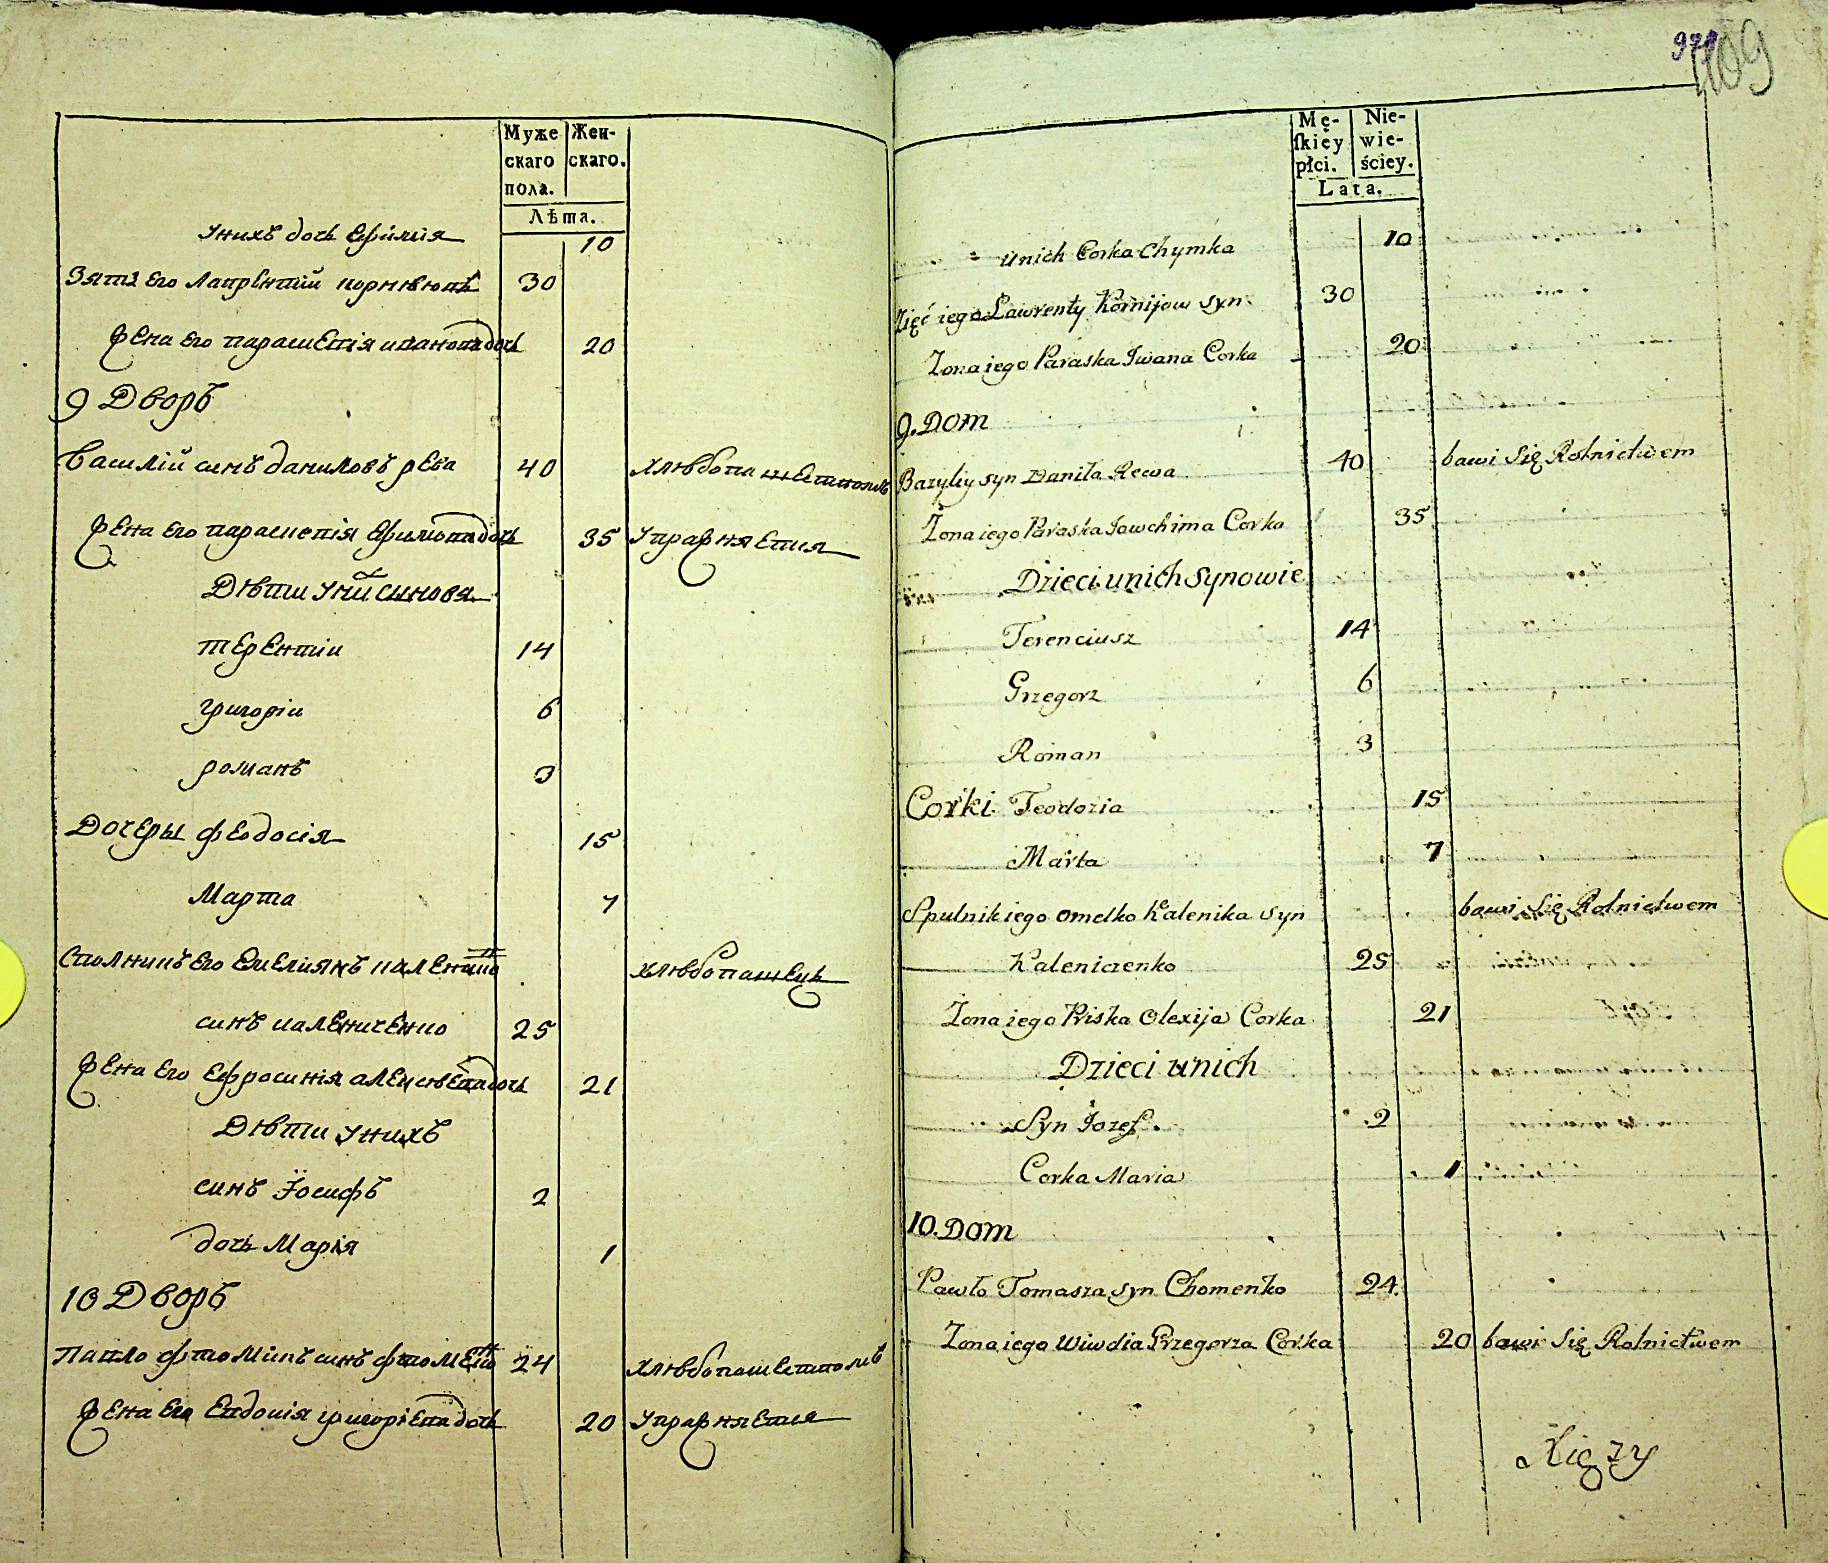 Муже
скаго
пола.
Жен-
скаго.
Лѣта.
Унихъ дочь Ефимия 10
Зять его Лаврентий корнѣювъ 30
Жена его параскевия ивановадочь 20
9 Дворъ
Василий синъ даниловъ рева 40 хлѣбопашествомъ
Жена его параскевія Ефимовадочь 35 упражняется
Дѣти уних синовя
терентии 14
григории 6
романъ 3
Дочеры феодосія 15
Марта 7
Сполникъ его Емелиянъ каленико хлѣбопашець
синъ каленичёнко 25
Жена его Ефросинія алексѣевадочь 21
Дѣти унихъ
синъ Іосифъ 2
дочь Марія 1
10 Дворъ
павло фтоминъ синъ фтоменко 24 хлѣбопашествомъ
Жена его Евдокія григоріевадочь 20 упражняется
109
Mę-
ſkiey
płci.
Nie-
wie-
ściey.
Lata.
unich Corka Chymka 10
Zięć iego Lawrenty Kornijow syn 30
Zona iego Paraska Jwana Corka 20
9. Dom
Bazyliy syn Daniła Rewa 40 bawi Się Rolnictwem
Zona iego Paraska Jowchima Corka 35
Dzieci unich Synowie
Terenciusz 14
Grzegorz 6
Roman 3
Corki Teodozia 15
Marta 7
Spulnik iego Omelko Kalenika Syn bawi Się Rolnictwem
Kaleniczenko 25
Zona iego Priska Olexija Corka 21
Dzieci unich
Syn Jozef. 2
Corka Maria 1
10. Dom
Pawło Tomasza syn Chomenko 24.
Zona iego Wiwdia Grzegorza Corka 20 bawi Się Rolnictwem
Xięzy